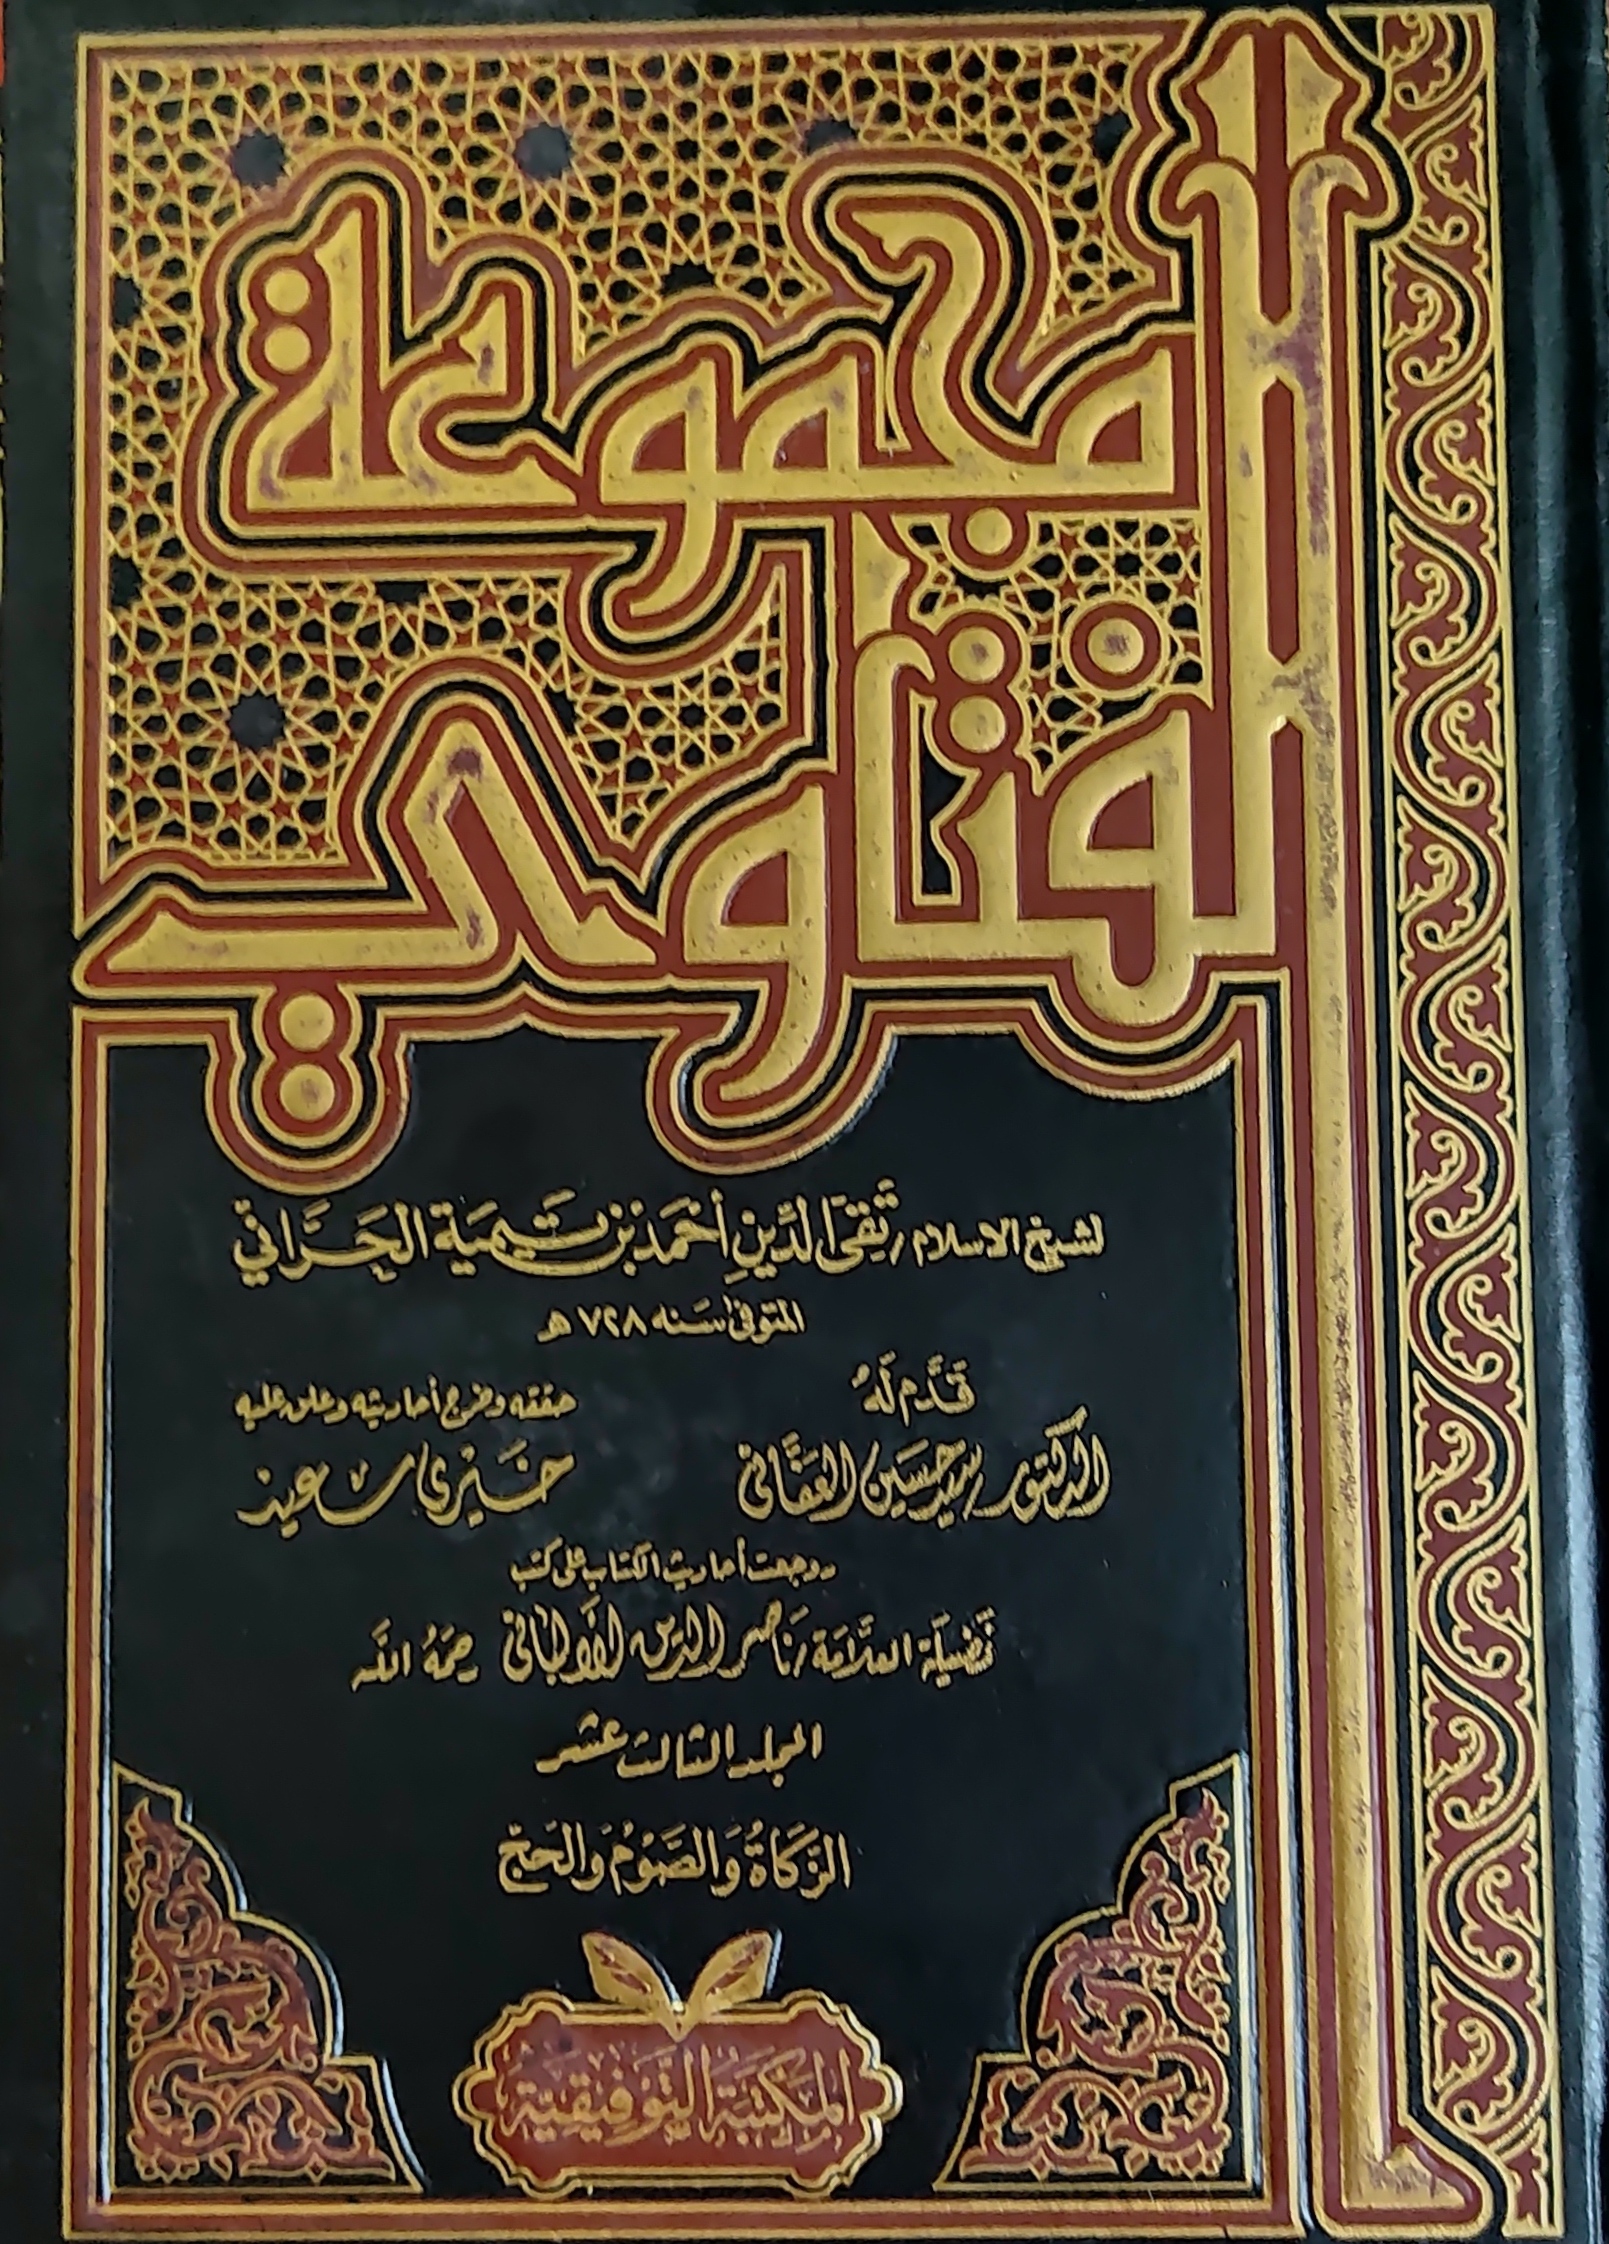 مجموعة
الفتاوي
لشيخ الاسلام تقي الدين أحمد بن تيمية الحراني
المتوفى سنه ٧٢٨ هـ
قدم له
الدكتور سيد حسين العفاني
حققه وخرج أحاديثه وعلق عليه
خيري سعيد
روجعت أحاديث الكتاب على كتب
فضيلة العلامة ناصر الدين الألباني رحمه الله
المجلد الثالث عشر
الزكاة والصوم والحج
المكتبة التوفيقية